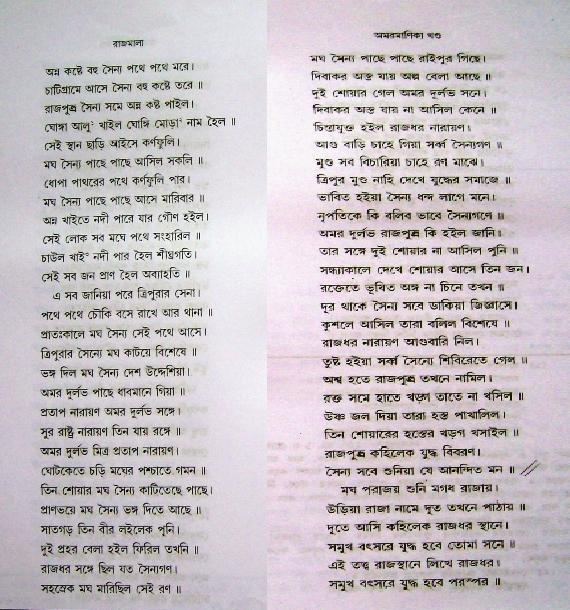 রাজমালা
অন্ন কষ্টে বহু সৈন্য পথে পথে মরে।
চাটিগ্রামে আসে সৈন্য বহু কষ্টে তরে ॥
রাজপুত্র সৈন্য সমে অন্ন কষ্ট পাইল।
ঘোঙ্গা আলু² খাইল ঘোঙ্গি মোড়া³ নাম হৈল ॥
সেই স্থান ছাড়ি আইসে কর্ণফুলি।
মঘ সৈন্য পাছে পাছে আসিল সকলি ॥
ধোপা পাথরের পথে কর্ণফুলি পার।
মঘ সৈন্য পাছে পাছে আসে মারিবার ॥
অন্ন খাইতে নদী পারে যার গৌণ হইল।
সেই লোক সব মঘে পথে সংহারিল ॥
চাউল খাই নদী পার হৈল শীঘ্রগতি।
সেই সব জন প্রাণ হৈল অব্যাহতি ॥
এ সব জানিয়া পরে ত্রিপুরার সেনা।
পথে পথে চৌকি বসে রাখে আর থানা ॥
প্রাতঃকালে মঘ সৈন্য সেই পথে আসে।
ত্রিপুরার সৈন্যে মঘ কাটয়ে বিশেষে ॥
ভঙ্গ দিল মঘ সৈন্য দেশ উদ্দেশিয়া।
অমর দুর্লভ পাছে ধাবমানে গিয়া ॥
প্রতাপ নারায়ণ অমর দুর্লভ সঙ্গে।
সুর রাষ্ট্র নারায়ণ তিন যায় রঙ্গে ॥
অমর দুর্লভ মিত্র প্রতাপ নারায়ণ।
ঘোটকেতে চড়ি মঘের পশ্চাতে গমন ॥
তিন শোয়ার মঘ সৈন্য কাটিতেছে পাছে।
প্রাণভয়ে মঘ সৈন্য ভঙ্গ দিতে আছে ॥
সাতগড় তিন বীর লইলেক পুনি।
দুই প্রহর বেলা হইল ফিরিল তখনি ॥
রাজধর সঙ্গে ছিল যত সৈন্যগণ।
সহস্রেক মঘ মারিছিল সেই রণ ॥
অমরমাণিক্য খণ্ড
মঘ সৈন্য পাছে পাছে রাইপুর গিছে।
দিবাকর অস্ত যায় অল্প বেলা আছে ॥
দুই শোয়ার গেল অমর দুর্লভ সনে।
দিবাকর অস্ত যায় না আসিল কেনে ॥
চিন্তাযুক্ত হইল রাজধর নারায়ণ।
আগু বাড়ি চাহে গিয়া সর্ব্ব সৈন্যগণ ॥
মুণ্ড সব বিচারিয়া চাহে রণ মাঝে।
ত্রিপুর মুণ্ড নাহি দেখে যুদ্ধের সমাজে ॥
ভাবিত হইয়া সৈন্য ধন্দ লাগে মনে।
নৃপতিকে কি বলিব ভাবে সৈন্যগণে ॥
অমর দুর্লভ রাজপুত্র কি হইল জানি।
তার সঙ্গে দুই শোয়ার না আসিল পুনি ॥
সন্ধ্যাকালে দেখে শোয়ার আসে তিন জন।
রক্তেতে ভূষিত অঙ্গ না চিনে তখন ॥
দূর থাকে সৈন্য সবে ডাকিয়া জিজ্ঞাসে।
কুশলে আসিল তারা বলিল বিশেষে ॥
রাজধর নারায়ণ আগুবারি নিল।
তুষ্ট হইয়া সর্ব্ব সৈন্যে শিবিরেতে গেল ॥
অশ্ব হতে রাজপুত্র তখনে নামিল।
রক্ত সমে হাতে খড়্গ তাতে না খসিল ॥
উষ্ণ জল দিয়া তারা হস্ত পাখালিল।
তিন শোয়ারের হস্তের খড়গ খসাইল ॥
রাজপুত্র কহিলেক যুদ্ধ বিবরণ।
সৈন্য সবে শুনিয়া যে আনন্দিত মন ॥
মঘ পরাজয় শুনি মগধ রাজায়।
উড়িয়া রাজা নামে দূত তখনে পাঠায় ॥
দূতে আসি কহিলেক রাজধর স্থানে।
সমুখ বৎসরে যুদ্ধ হবে তোমা সনে ॥
এই তত্ত্ব রাজস্থানে লিখে রাজধর।
সমুখ বৎসরে যুদ্ধ হবে পরস্পর ॥